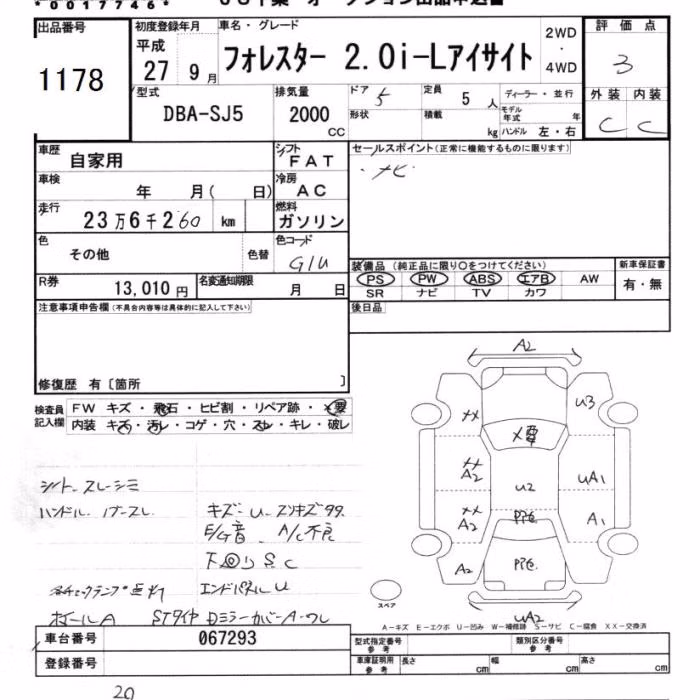 *0017746*
出品番号
1178
初度登録年月
平成
27 9月
車名・グレード
フォレスター 2.0i-Lアイサイト
2WD
・
4WD
評価点
3
外装 内装
C C
型式
DBA-SJ5
排気量
2000
CC
ドア 5
形状
定員
5人
積載
kg
ディーラー・並行
モデル
年式 年
ハンドル 左・右
車歴
自家用
シフト
FAT
セールスポイント(正常に機能するものに限ります)
・ナビ
車検
年 月( 日)
冷房
AC
走行
23万6千260 km
燃料
ガソリン
色
その他
色替
色コード
G1U
装備品(純正品に限り○をつけてください)
PS PW ABS エアB AW
SR ナビ TV カワ
新車保証書
有・無
R券
13,010円
名変通知期限
月 日
後日品
注意事項申告欄(不具合内容等は具体的に記入して下さい)
修復歴 有〔箇所 〕
検査員
記入欄
FW キズ・飛石・ヒビ割・リペア跡・×要
内装 キズ・汚レ・コゲ・穴・スレ・キレ・破レ
シート、スレ・シミ
ハンドル
キズ・U・スリキズ99
E/G音 A/C不良
下回りSC
エンドパネルU
ホイールA STタイヤ DミラーカバーA・ワレ
A2
U3
××
×要
××
A2
UA1
U2
××
A2
A1
A2
UA2
スペア
A-キズ E-エクボ U-凹み W-補修跡 S-サビ C-腐食 XX-交換済
車台番号
067293
登録番号
型式指定番号
参考
類別区分番号
参考
車庫証明用
参考
長さ cm
幅 cm
高さ cm
20